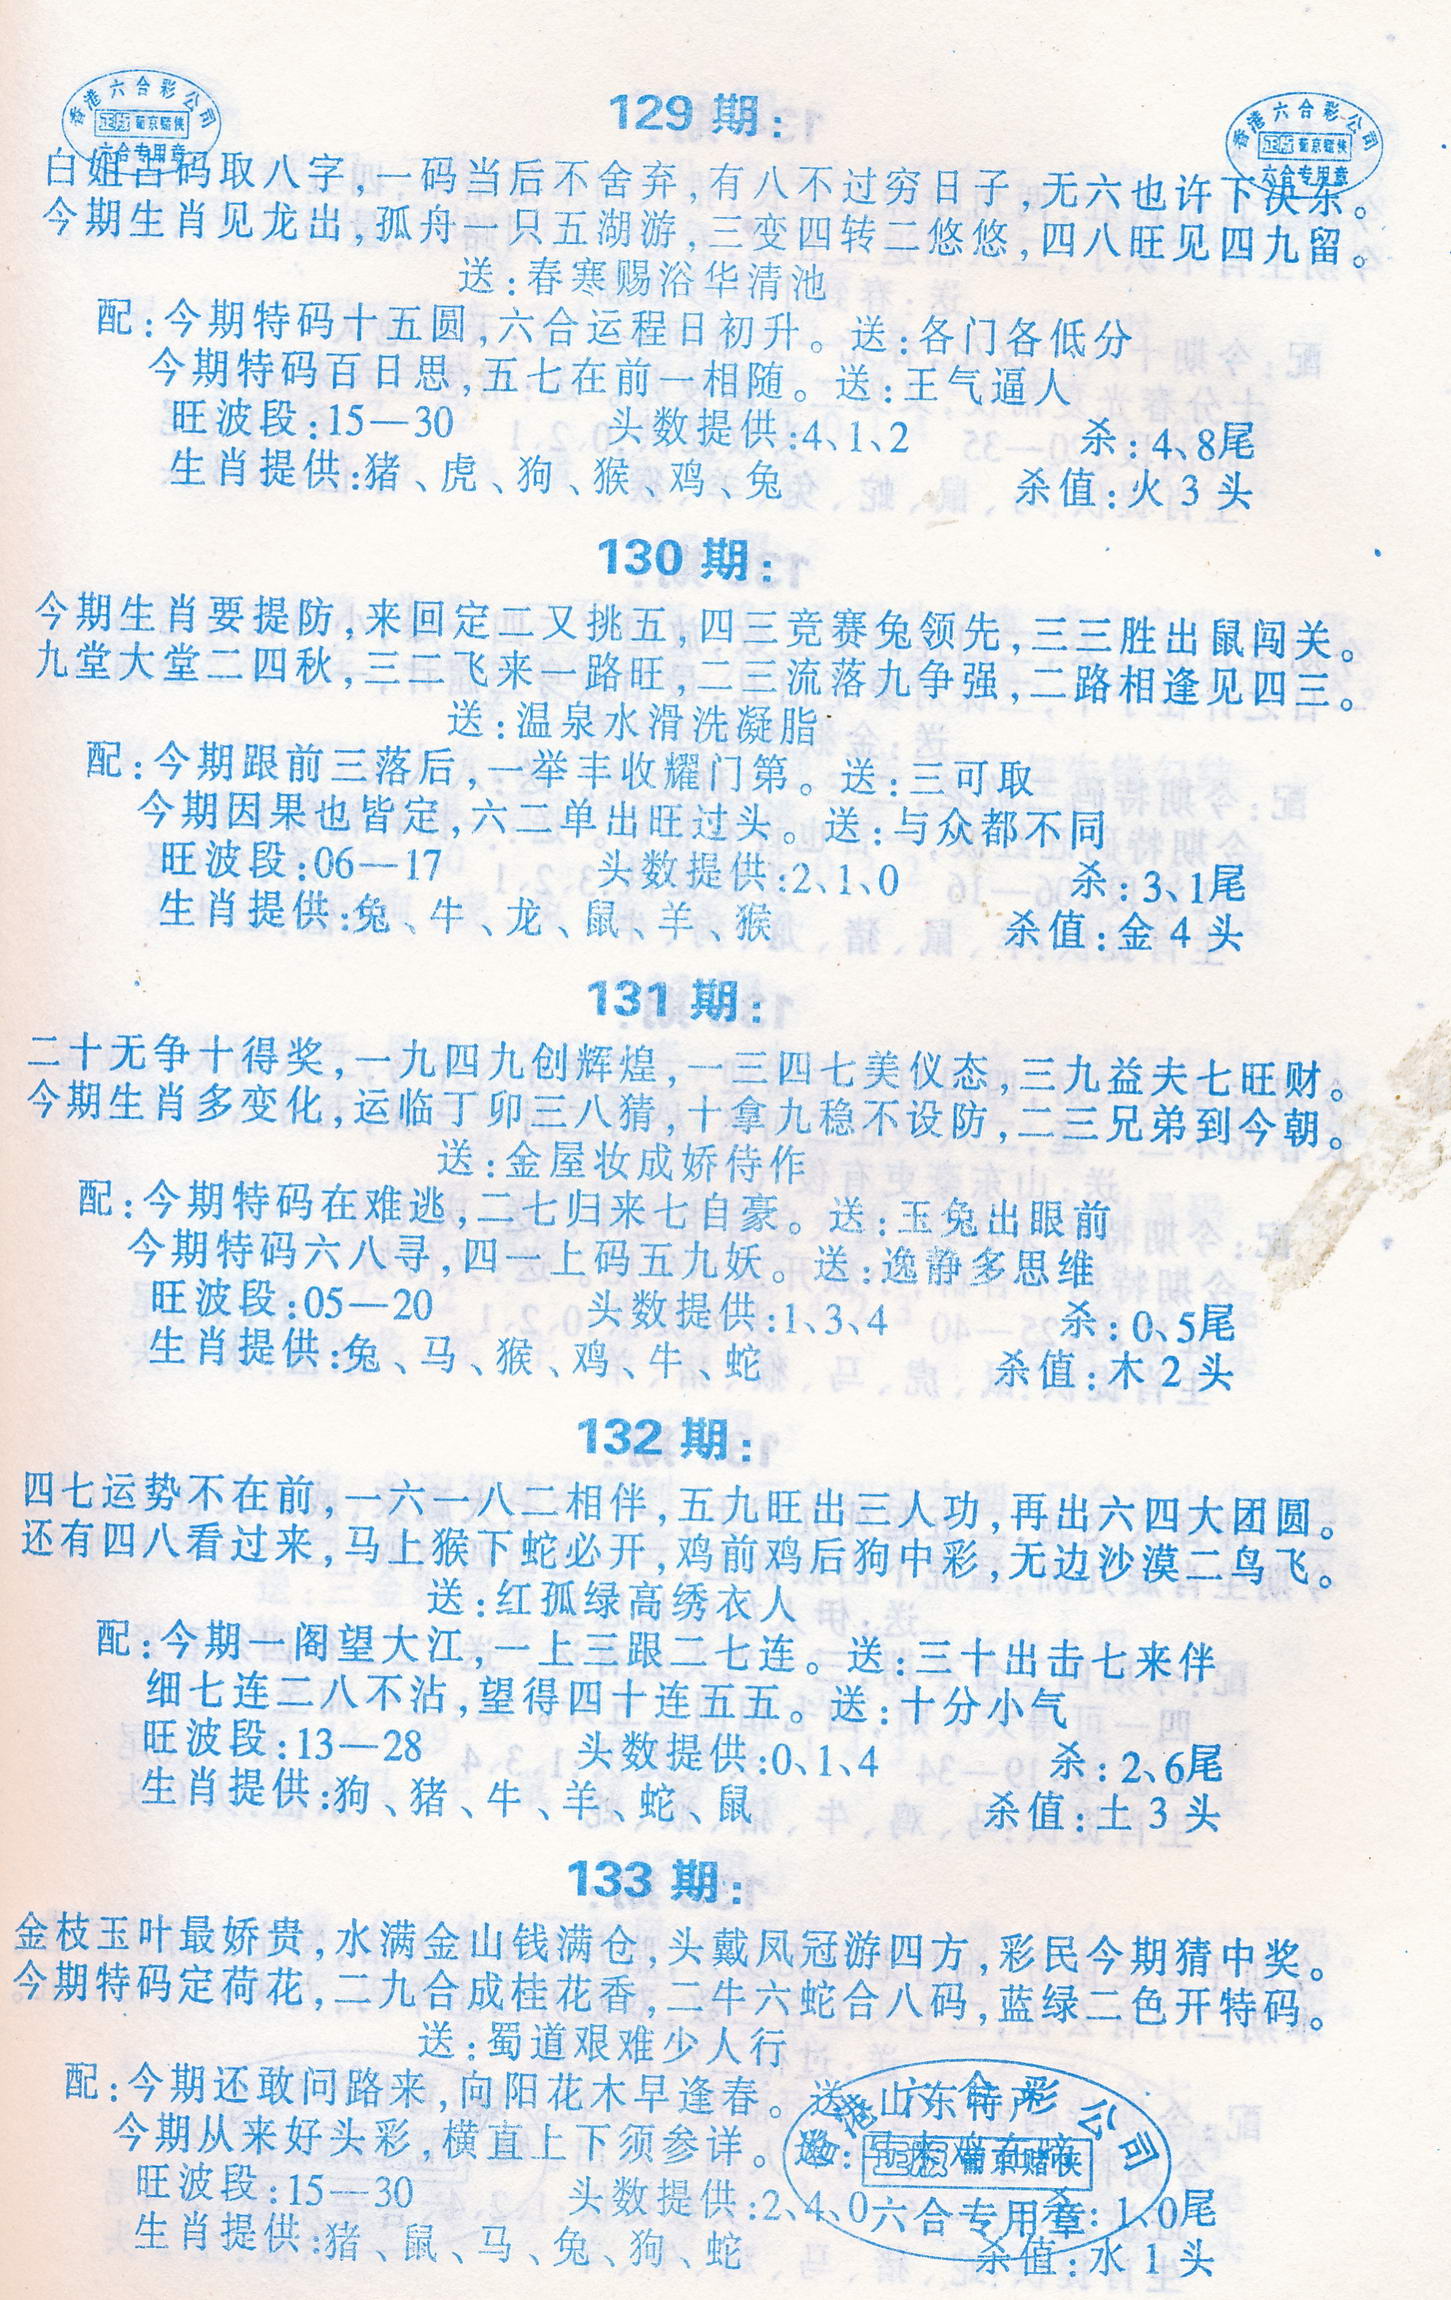 香港六合彩公司
正版 葡京赌侠
六合专用章
香港六合彩公司
正版 葡京赌侠
六合专用章
129期:
白姐占码取八字,一码当后不舍弃,有八不过穷日子,无六也许下决东。
今期生肖见龙出,孤舟一只五湖游,三变四转二悠悠,四八旺见四九留。
送:春寒赐浴华清池
配:今期特码十五圆,六合运程日初升。送:各门各低分
今期特码百日思,五七在前一相随。送:王气逼人
旺波段:15—30 头数提供:4、1、2 杀:4、8尾
生肖提供:猪、虎、狗、猴、鸡、兔 杀值:火3头
130期:
今期生肖要提防,来回定二又挑五,四三竞赛兔领先,三三胜出鼠闯关。
九堂大堂二四秋,三二飞来一路旺,二三流落九争强,二路相逢见四三。
送:温泉水滑洗凝脂
配:今期跟前三落后,一举丰收耀门第。送:三可取
今期因果也皆定,六二单出旺过头。送:与众都不同
旺波段:06—17 头数提供:2、1、0 杀:3、1尾
生肖提供:兔、牛、龙、鼠、羊、猴 杀值:金4头
131期:
二十无争十得奖,一九四九创辉煌,一三四七美仪态,三九益夫七旺财。
今期生肖多变化,运临丁卯三八猜,十拿九稳不设防,二三兄弟到今朝。
送:金屋妆成娇侍作
配:今期特码在难逃,二七归来七自豪。送:玉兔出眼前
今期特码六八寻,四一上码五九妖。送:逸静多思维
旺波段:05—20 头数提供:1、3、4 杀:0、5尾
生肖提供:兔、马、猴、鸡、牛、蛇 杀值:木2头
132期:
四七运势不在前,一六一八二相伴,五九旺出三人功,再出六四大团圆。
还有四八看过来,马上猴下蛇必开,鸡前鸡后狗中彩,无边沙漠二鸟飞。
送:红孤绿高绣衣人
配:今期一阁望大江,一上三跟二七连。送:三十出击七来伴
细七连二八不沾,望得四十连五五。送:十分小气
旺波段:13—28 头数提供:0、1、4 杀:2、6尾
生肖提供:狗、猪、牛、羊、蛇、鼠 杀值:土3头
133期:
金枝玉叶最娇贵,水满金山钱满仓,头戴凤冠游四方,彩民今期猜中奖。
今期特码定荷花,二九合成桂花香,二牛六蛇合八码,蓝绿二色开特码。
送:蜀道艰难少人行
配:今期还敢问路来,向阳花木早逢春。送:山东特产
今期从来好头彩,横直上下须参详。送:
旺波段:15—30 头数提供:2、4、0 杀:1、0尾
生肖提供:猪、鼠、马、兔、狗、蛇 杀值:水1头
港六合彩公司
正版 葡京赌侠
六合专用章